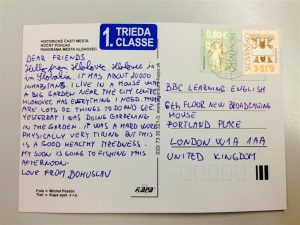 HISTORICKÉ ČASTI MESTA
NOČNÝ POHĽAD
PANORÁMA MESTA HLOHOVEC
1. TRIEDA
CLASSE
DEAR FRIENDS
Hello from Hlohovec. Hlohovec is
in Slovakia. IT HAS ABOUT 20000
INHABITANTS. I LIVE IN A HOUSE WITH
A BIG GARDEN NEAR THE CITY CENTRE.
HLOHOVEC HAS EVERYTHING I NEED. THERE
ARE LOTS OF THINGS TO DO AND SEE.
YESTERDAY I WAS DOING GARDENING
IN THE GARDEN. IT WAS A HARD WORK,
PHYSICALLY VERY TIRING BUT THIS
IS A GOOD HEALTHY TIREDNESS.
MY SON IS GOING TO FISHING THIS
AFTERNOON.
LOVE FROM BOHUSLAV
Foto © Michal Pastién
Tlač © Kapa spol. s r.o.
KAPA
0,90 €
SLOVENSKO
BBC LEARNING ENGLISH
6th FLOOR NEW BROADCASTING
HOUSE
PORTLAND PLACE
LONDON W1A 1AA
UNITED KINGDOM